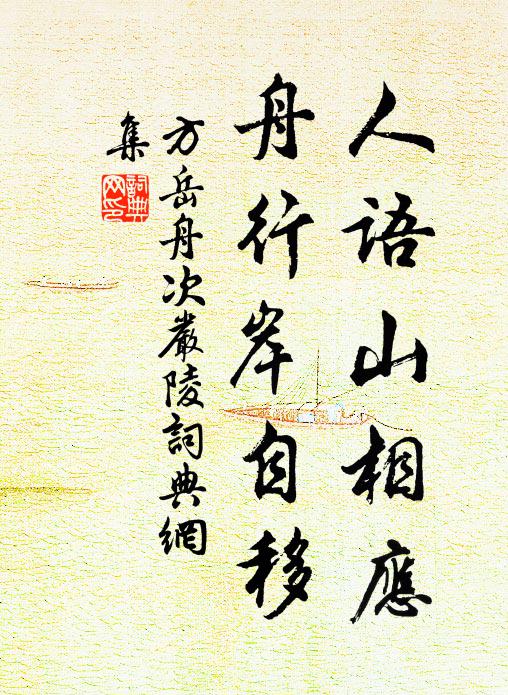 人語山相應
舟行岸自移
方岳舟次嚴陵詞典網
集
詞典
网印